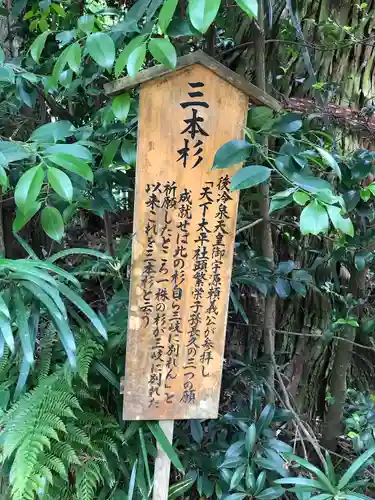 三本杉
後冷泉天皇御宇源頼義公が参拝し
天下太平社頭繁栄子孫長久の大願
成就せば此の杉自ら三岐に別れんと
祈願したところ一株の杉が三岐に別れた
以来これを三本杉と云う